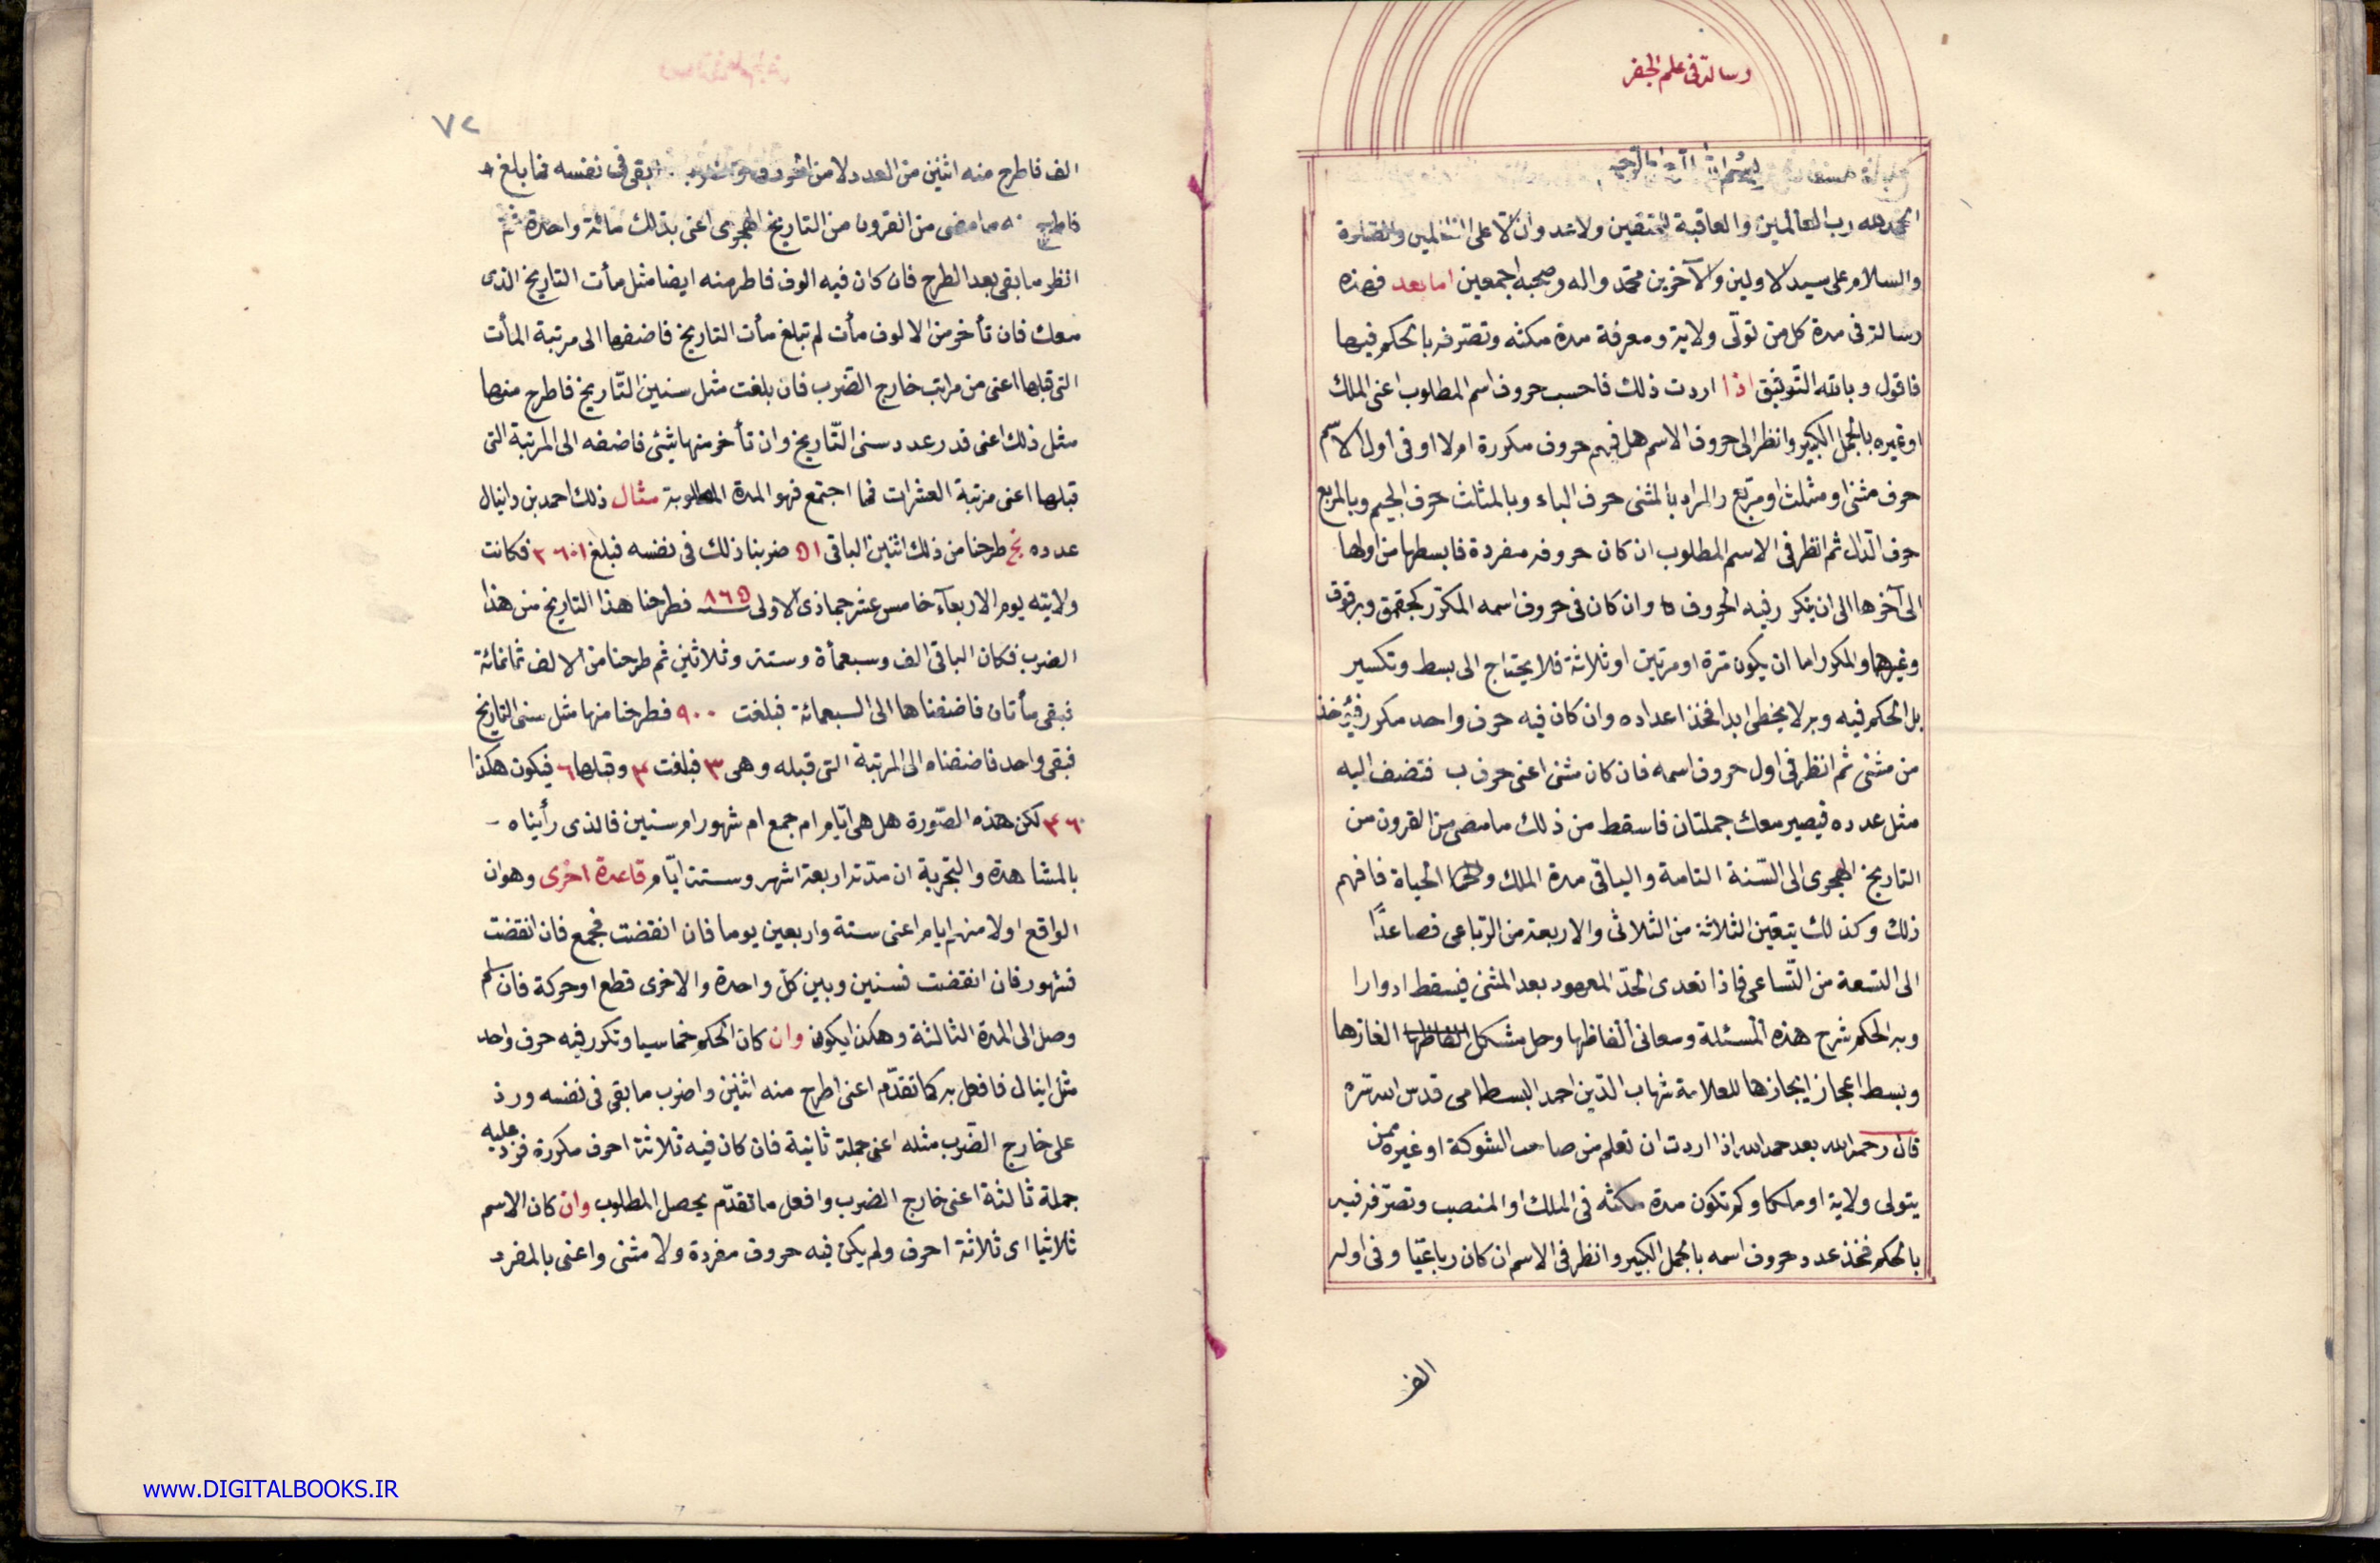 رسالة فى علم الجفر
بسم الله الرحمن الرحيم
الحمد لله رب العالمين والعاقبة للمتقين ولا عدوان الا على الظالمين والصلوة
والسلام على سيد الاولين والآخرين محمد واله وصحبه اجمعين اما بعد فهذه
رسالة فى مدة كل من تولّى ولاية ومعرفة مدة مكثه وتصرّفه بالحكم فيها
فاقول وبالله التّوفيق اذا اردت ذلك فاحسب حروف اسم المطلوب اعنى الملك
او غيره بالجمل الكبير وانظر الى حروف الاسم هل فيهم حروف مكررة ام لا او فى اول الاسم
حرف مثنى او مثلث او مربّع والمراد بالمثنى حرف الباء وبالمثلث حرف الجيم وبالمربع
حرف الدّال ثم انظر فى الاسم المطلوب ان كان حروفه مفردة فابسطها من اولها
الى آخرها الى ان يتكرر فيه الحروف وان كان فى حروف اسمه المكرّر كجقمق وبرقوق
وغيرهما والمكرر اما ان يكون مرّة او مرتين او ثلاثة فلا يحتاج الى بسط وتكسير
بل الحكم فيه وبه لا يخطى ابدا فخذ اعداده وان كان فيه حرف واحد مكرر فيؤخذ
من مثنى ثم انظر فى اول حروف اسمه فان كان مثنى اعنى حرف ب فتضف اليه
مثل عدده فيصير معك جملتان فاسقط من ذلك ما مضى من القرون من
التاريخ الهجرى الى السّنة التامة والباقى مدة الملك والحياة فافهم
ذلك وكذلك يتعيّن الثلاثة من الثلاثى والاربعة من الرّباعى فصاعدًا
الى التسعة من التّساعى فاذا تعدى الحدّ المعهود بعد المثنى فيسقط ادوارا
وبه الحكم شرح هذه المسئلة ومعانى الفاظها وحل مشكل الفاظها الغازها
وبسط اعجاز ايجازها للعلامة شهاب الدّين احمد البسطامى قدس الله سرّه
قال رحمه الله بعد حمد الله اذا اردت ان تعلم من صاحب الشوكة او غيره ممن
يتولى ولاية او ملكا وكم تكون مدة مكثه فى الملك او المنصب وتصرّفه فيه
بالحكم فخذ عدد حروف اسمه بالجمل الكبير وانظر فى الاسم ان كان رباعيّا وفى اوله
الف
٧٢
الف فاطرح منه اثنين من العدد لا من الحروف واضرب ما بقى فى نفسه فما بلغ
فاطرح منه ما مضى من القرون من التاريخ الهجرى اعنى بذلك مائة واحدة ثم
انظر ما بقى بعد الطرح فان كان فيه الوف فاطر منه ايضا مثل مأت التاريخ الذى
معك فان تأخر من الالوف مأت لم تبلغ مأت التاريخ فاضفها الى مرتبة المأت
التى قبلها اعنى من مراتب خارج الضّرب فان بلغت مثل سنين التّاريخ فاطرح منها
مثل ذلك اعنى قدر عدد سنى التّاريخ وان تأخر منها شئ فاضفه الى المرتبة التى
قبلها اعنى مرتبة العشرات فما اجتمع فهو المدة المطلوبة مثال ذلك احمد بن دانيال
عدده نج طرحنا من ذلك اثنين الباقى ٥١ ضربنا ذلك فى نفسه فبلغ ٢٦٠١ فكانت
ولايته يوم الاربعآء خامس عشر جماذى الاولى سنه ٨٦٥ فطرحنا هذا التاريخ من هذا
الضرب فكان الباقى الف وسبعمأة وستة وثلاثين ثم طرحنا من الالف ثمانمائة
فبقى مأتان فاضفناها الى السبعمائة فبلغت ٩٠٠ فطرحنا منها مثل سنى التاريخ
فبقى واحد فاضفناه الى المرتبة التى قبله وهى ٣ فبلغت ٤ وقبلها ٦ فيكون هكذا
٤٦ لكن هذه الصّورة هل هى ايّام ام جمع ام شهور ام سنين فالذى رأيناه
بالمشاهدة والتجربة ان مدّته اربعة اشهر وستت ايّام قاعدة اخرى وهو ان
الواقع اولا منهم ايام اعنى ستة واربعين يوما فان انقضت فجمع فان انقضت
فشهور فان انقضت فسنين وبين كل واحدة والاخرى قطع او حركة فان سلم
وصل الى المدة الثالثة وهكذا يكون وان كان الحكم خماسيا وتكرر فيه حرف واحد
مثل اينال فافعل به كما تقدّم اعنى اطرح منه اثنين واضرب ما بقى فى نفسه وزد
على خارج الضّرب مثله اعنى جملة ثانية فان كان فيه ثلاثة احرف مكررة فزد عليه
جملة ثالثة اعنى خارج الضرب وافعل ما تقدّم يحصل المطلوب وان كان الاسم
ثلاثيا اى ثلاثة احرف ولم يكن فيه حروف مفردة ولا مثنى واعنى بالمفرد
www.DIGITALBOOKS.IR